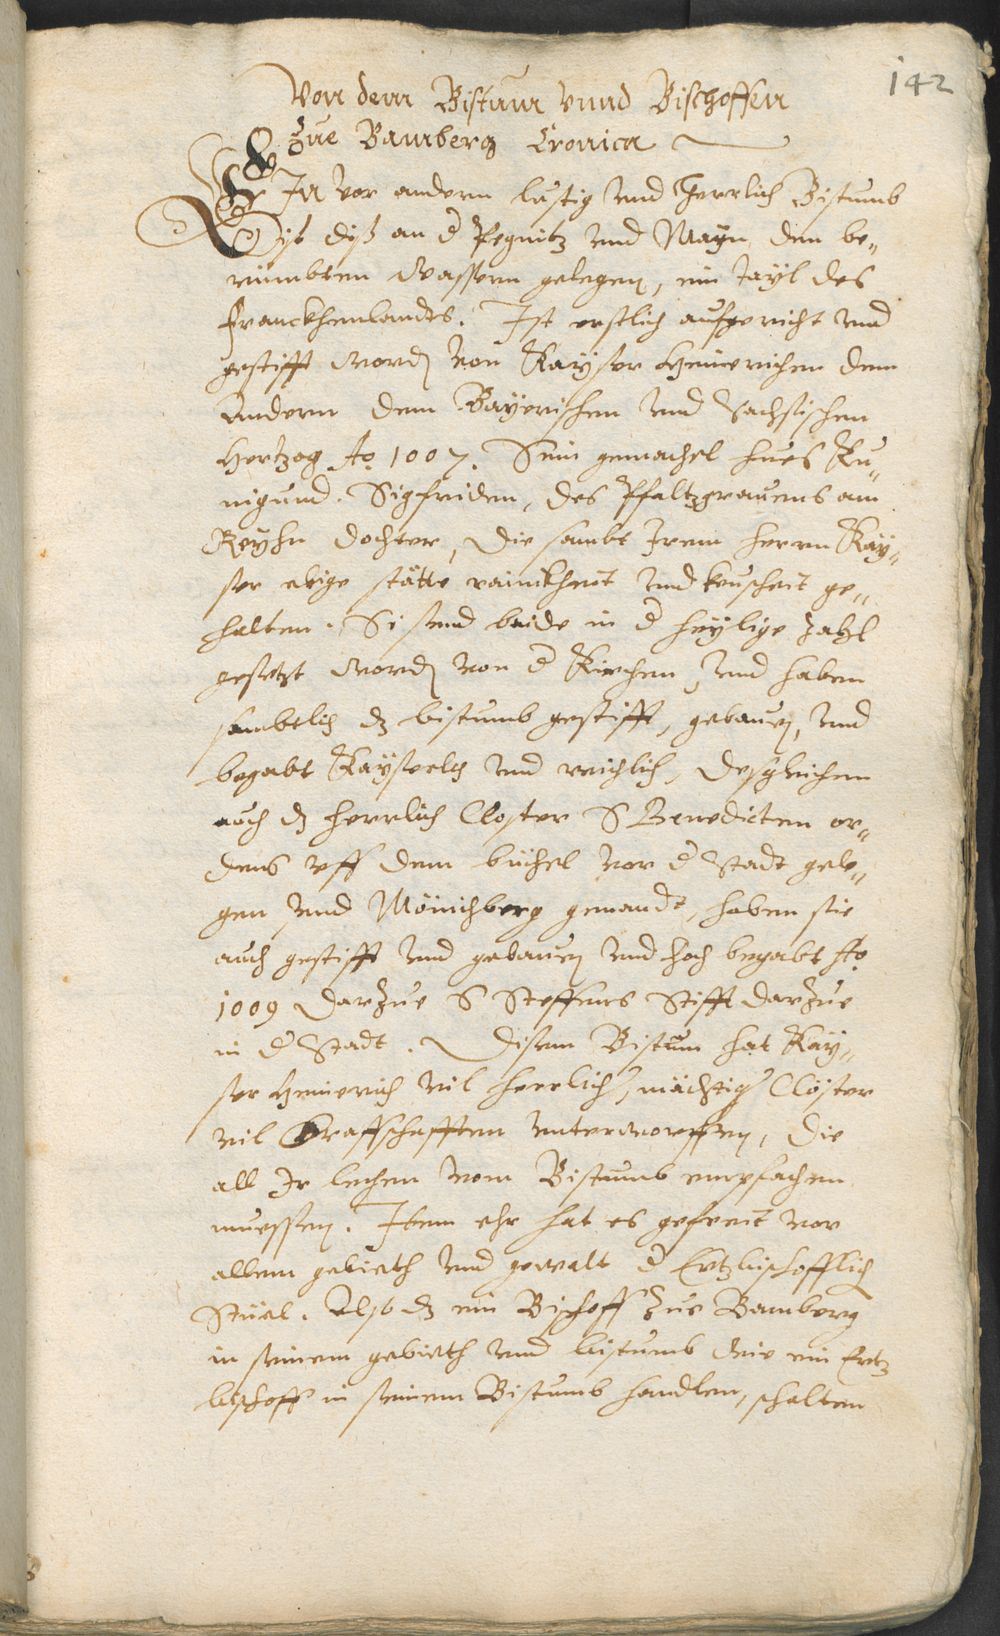 142
Von dem Bistum vnnd Bischoffen
Zue Bamberg Cronica
Ein vor andern lustig vnd herrlich Bistumb
Ist diß an d Pegnitz vnd Mayn, den be„
rümbten Wassern gelegen, ein tayl des
Franckhenlandts. Ist erstlich aufgericht vnd
gestifft word von Kayser Heinrichen dem
andern dem Bayerischen vnd Sachsischen
Hertzog Ao. 1007. Sein gemachel hies Ku„
nigund. Sigfriden, des Pfaltzgrauens am
Reyhn dochter, die sambt Irem herrn Kay„
ser ebige stätte rainikheit vnd keuscheit ge„
halten. Si send baide in d heylige zahl
gesetzt word von d Kirchen, vnd haben
sambtlich dz bistumb gestifft, gebauen, vnd
begabt Kayserlich vnd reichlich, desgleichen
auch dz herrlich Closter S Benedicten or„
dens vff dem büchel vor d Stadt gele„
gen, vnd Mönichberg genandt, haben sie
auch gestifft vnd gebauen vnd hoch begabt Ao.
1009 darzue S Steffens Stifft darzue
in d Stadt. Disem Bistum hat Kay„
ser Heinrich vil herrliche, mächtige Clöster
vil Graffschafften vnterworffen, die
all Ir lechen vom Bistumb empfachen
muessen. Item ehr hat es gefreit vor
allem gebieth vnd gewalt d Ertzbischofflich
Stüel. Also dz ein Bischoff zue Bamberg
in seinem gebieth vnd bistumb wie ein Ertz
bischoff in seinem Bistumb handlen, schalten